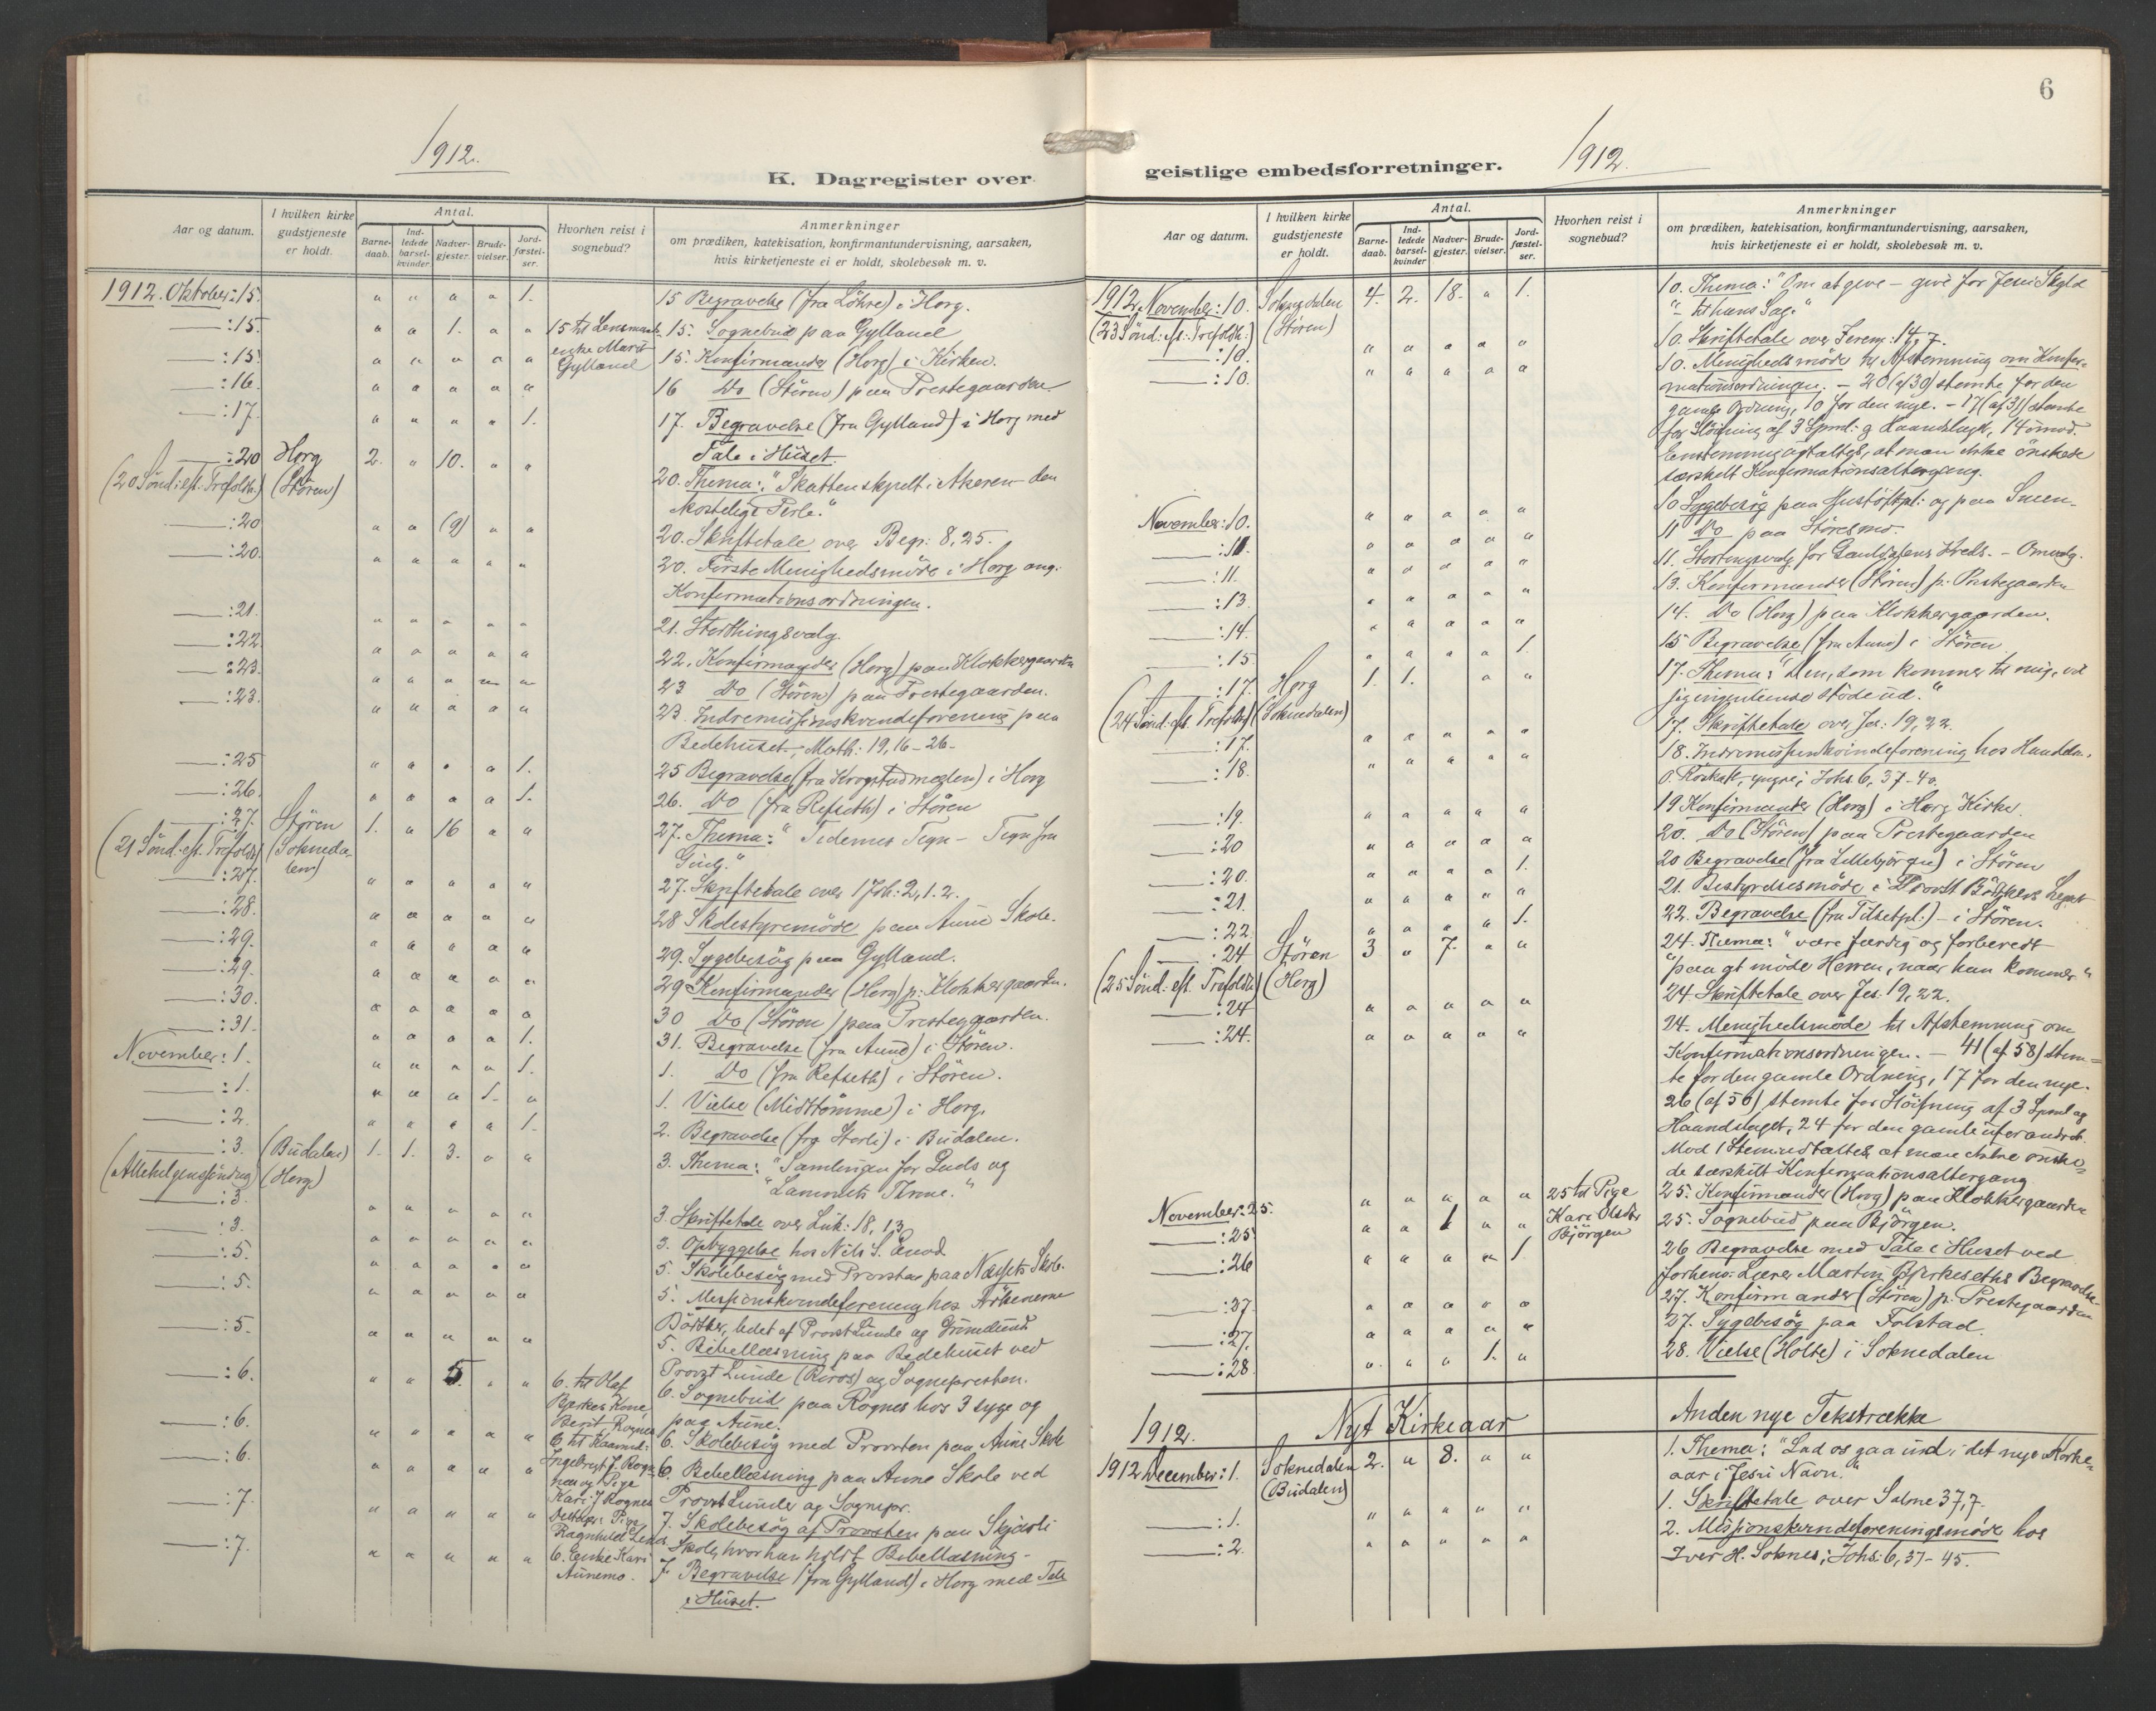 6
1912.
K. Dagregister over
Aar og datum.
I hvilken kirke gudstjeneste er holdt.
Antal.
Barne-daab.
Ind-ledede barsel-kvinder
Nadver-gjester.
Brude-vielser.
Jord-fæstel-ser.
Hvorhen reist i sognebud?
Anmerkninger
om prædiken, katekisation, konfirmantundervisning, aarsaken,
hvis kirketjeneste ei er holdt, skolebesøk m. v.
1912. Oktober: 15. " " " " 1. 15 Begravelse (fra Löhre) i Horg.
: 15. " " 1. " " 15 til Lensmands- 15. Sognebud paa Gylland
enke Marit
Gylland
: 15. " " " " " 15. Konfirmander (Horg) i Kirken.
: 16. " " " " " 16 Do (Stören) paa Prestegaarden
: 17. " " " " 1. 17. Begravelse (fra Gylland) i Horg med
Tale i Huset.
: 20 Horg 2. " 10. " " 20. Thema: "Skatten skjult i Akeren - den
(20 Sönd: eft. Trefoldh:) (Stören)
kostelige Perle."
: 20 " " (9) " " 20. Skriftetale over Begr: 8,25.
: 20. " " " " " 20. Förste Menighedsmöde i Horg ang.
Konfirmationsordningen.
: 21. " " " " " 21. Storthingsvalg.
: 22. " " " " " 22. Konfirmander (Horg) paa Klokkergaarden
: 23. " " " " " 23 Do (Stören) paa Prestegaarden.
: 23. " " " " " 23. Indremissionskvindeforening paa
Bedehuset; Math: 19,16-26-
: 25 " " " " 1. 25 Begravelse (fra Krogstadmezlen) i Horg
: 26. " " " " 1. 26. Do (fra Refseth) i Stören
: 27. Stören 1. " 16 " " 27. Thema: "Tidernes Tegn - Tegn fra
(21 Sönd: eft. Trefoldh) (Soknedalen)
Gud."
: 27. " " " " " 27. Skriftetale over 1 Joh: 2,1.2.
: 28. " " " " " 28 Skolestyremöde paa Aune Skole.
: 29. " " " " " 29. Sygebesög paa Gylland.
: 29. " " " " " 29 Konfirmander (Horg) p: Klokkergaarden.
: 30. " " " " " 30 Do (Stören) paa Prestegaarden.
: 31. " " " " 1. 31. Begravelse (fra Aune) i Stören.
November: 1. " " " " 1. 1. Do (fra Refseth) i Stören.
: 1. " " " 1. " 1. Vielse (Midttömme) i Horg.
: 2. " " " " 1. 2. Begravelse (fra Storli) i Budalen.
: 3. (Budalen) 1. 1. 3. " " 3. Thema: "Samlingen for Guds og
(Allehelgenssöndag) (Horg)
"Lammets Throne."
: 3. " " " " " 3. Skriftetale over Luk: 18, 13
: 3. " " " " " 3. Opbyggelse hos Nils S. Enod
: 5. " " " " " 5. Skolebesög med Provsten paa Næssets Skole.
: 5. " " " " " 5. Missionskvindeforening hos Frökenerne
Böttker, ledet af Provst Lunde og
: 5. " " " " " 5. Bibellæsning paa Bedehuset ved
Provst Lunde (Röros) og Sognepresten.
: 6. " " 5. " " 6. til Olaf 6. Sognebud paa Rognes hos 3 syge og
Bjerkes Kone
Berit Rognes paa Aune.
: 6. " " " " " 6 til Kaarmd: 6. Skolebesög med Provsten paa Aune Skole
: 6. " " " " " Ingebrigt J. Rognes 6. Bibellæsning paa Aune Skole ved
og Pige
Kari J Rognes Provst Lunde og Sognepr.
: 7. " " " " " Pige 7. Skolebesög af Provsten paa Skjærli
Ragnhild Skole, hvor han holdt Bibellæsning.
: 7. " " " " " 6. Enke Kari 7 Begravelse (fra Gylland) i Horg med Tale
Aunemo. i Huset.
geistlige embedsforretninger.
1912.
Aar og datum.
I hvilken kirke gudstjeneste er holdt.
Antal.
Barne-daab.
Ind-ledede barsel-kvinder
Nadver-gjester.
Brude-vielser.
Jord-fæstel-ser.
Hvorhen reist i sognebud?
Anmerkninger
om prædiken, katekisation, konfirmantundervisning, aarsaken,
hvis kirketjeneste ei er holdt, skolebesøk m. v.
1912. November: 10. Soknedalen 4. 2. 18. " 1. 10. Thema: "Om at give - give for Jesu Skyld
(23 Sönd: eft: Trefoldh:) (Stören) "- til hans Sag."
: 10. " " " " " 10. Skriftetale over Jerem: 14,7.
: 10. " " " " " 10. Menighedsmöde til Afstemning om Konfir-
mationsordningen. - 20 (af 30) stemte for den
gamle Ordning, 10 for den nye. - 17 (af 31) stemte
for Slöifning af 3 Spml: og Haandslaget, 14 imod.
Enstemmig udtaltes, at man ikke önskede
særskilt Konfirmationsaltergang.
November: 10. " " " " " 10 Sygebesög paa Hustöftpl: og paa Smen.
: 11. " " " " " 11 Do paa Störesmo.
: 11. " " " " " 11. Stortingsvalg for Gauldalens Kreds. - Omvalg.
: 13. " " " " " 13. Konfirmander (Stören) p: Prestegaarden
: 14. " " " " " 14. Do (Horg) paa Klokkergaarden.
: 15. " " " " 1. 15 Begravelse (fra Aune) i Stören
: 17. Horg 1. 1. " " 17. Thema: "Den, som kommer til mig, vil
(24 Sönd: eft. Trefoldh) (Soknedalen) jeg ingenlunde stöde ud."
: 17. " " " " " 17. Skriftetale over Jes: 19,22.
: 18. " " " " " 18. Indremissionskvindeforening hos Handelsm.
O. Röskaft, yngre; Johs 6, 37-40
: 19. " " " " " 19 Konfirmander (Horg) i Horg Kirke.
: 20 " " " " " 20. Do (Stören) paa Prestegaarden
: 20. " " " " 1. 20 Begravelse (fra Lillebjörgen) i Stören
: 21. " " " " " 21. Bestyrelsesmöde i Provst Böttkers Legat
: 22 " " " " 1. 22. Begravelse (fra Tilsetpl:) - i Stören.
: 24 Stören 3 " 7. " " 24. Thema: "være færdig og forberedt
(25 Sönd: eft. Trefoldh) (Horg) "paa at möde Herren, naar han kommer"
: 24 " " " " " 24 Skriftetale over Jes. 19,22.
: 24. " " " " " 24. Menighedsmöde til Afstemning om
Konfirmationsordningen. - 41 (af 58) stem=
te for den gamle Ordning, 17 for den nye.
26 (af 50) stemte for Slöifning af 3 Spml og
Haandslaget, 24 for den gamle uforandret.
Mod 1 Stemme udtaltes, at man ikke önske=
de særskilt Konfirmationsaltergang
November: 25. " " " " " 25 til Pige 25. Konfirmander (Horg) paa Klokkergaarden
: 25 " " 1 " " Kari Olsdtr 25. Sognebud paa Björgen.
Björgen
: 26 " " " " 1. 26 Begravelse med Tale i Huset ved
forhenv: Lærer Martin Bjerkeseths Begravelse
: 27. " " " " " 27. Konfirmander (Stören) p. Prestegaarden
: 27. " " " " " 27. Sygebesög paa Folstad.
: 28 " " " 1. " 28. Vielse (Holte) i Soknedalen
1912. Nyt Kirkeaar Anden nye Tekstrække
1912 December: 1. Soknedalen 2. " 8. " " 1. Thema: "Lad os gaa ind i det nye Kirke=
(Budalen) aar i Jesu Navn."
: 1. " " " " " 1. Skriftetale over Salme 37,7.
: 2. " " " " " 2. Missionskvindeforeningsmöde hos
Iver H. Soknes; Johs: 6, 37-45.